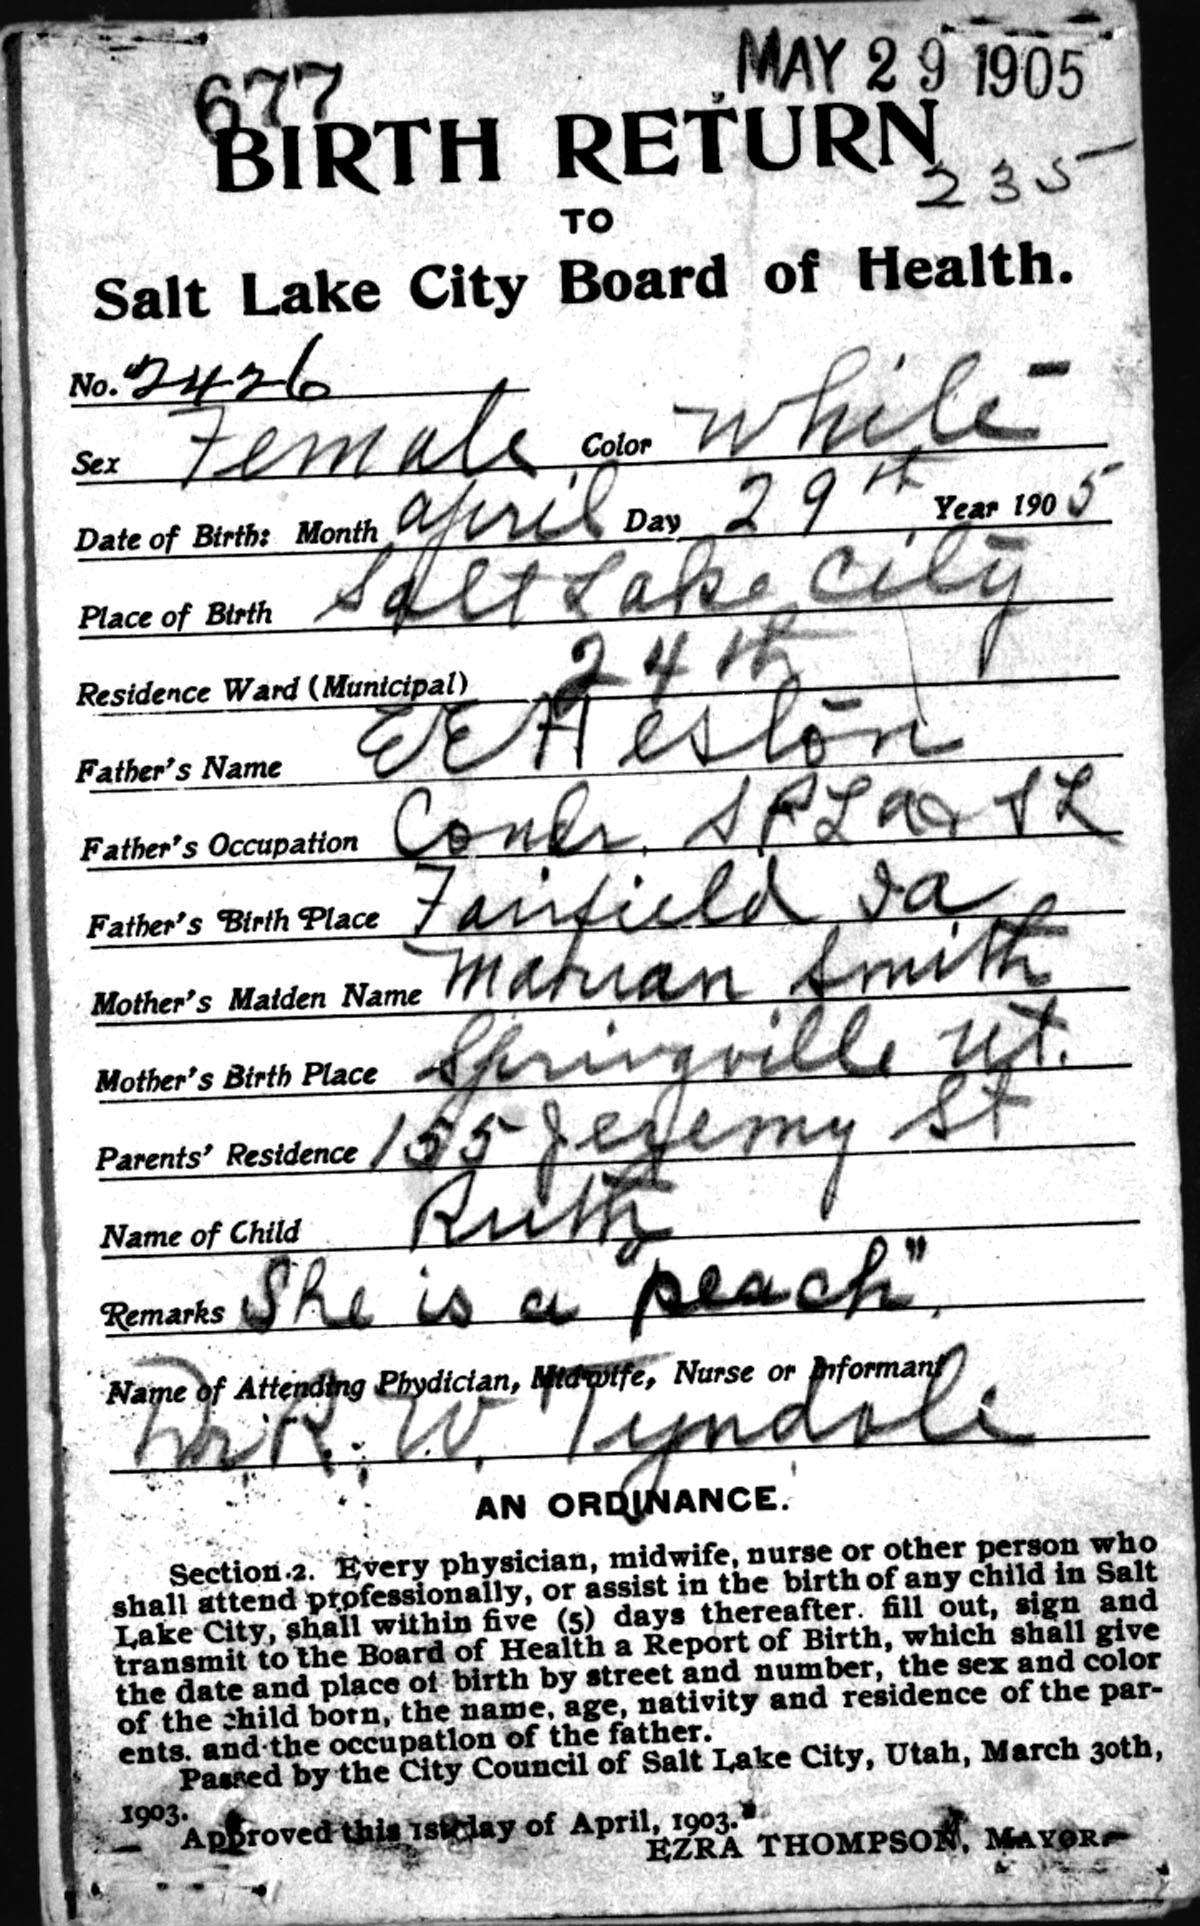 677 MAY 29 1905
BIRTH RETURN
235
TO
Salt Lake City Board of Health.
No. 2426
Sex Female Color White
Date of Birth: Month april Day 29th Year 1905
Place of Birth Salt Lake City
Residence Ward (Municipal) 24th
Father's Name EE Heston
Father's Occupation Condr. SPLA & SL
Father's Birth Place Fairfield Ia
Mother's Maiden Name Marian Smith
Mother's Birth Place Springville Ut.
Parents' Residence 155 Jeremy St
Name of Child Ruth
Remarks She is a "peach".
Name of Attending Phydician, Midwife, Nurse or Informant
Dr. R. W. Tyndale
AN ORDINANCE.
Section 2. Every physician, midwife, nurse or other person who
shall attend professionally, or assist in the birth of any child in Salt
Lake City, shall within five (5) days thereafter. fill out, sign and
transmit to the Board of Health a Report of Birth, which shall give
the date and place of birth by street and number, the sex and color
of the child born, the name, age, nativity and residence of the par-
ents. and the occupation of the father.
Passed by the City Council of Salt Lake City, Utah, March 30th,
1903.
Approved this 1st day of April, 1903.
EZRA THOMPSON, MAYOR.